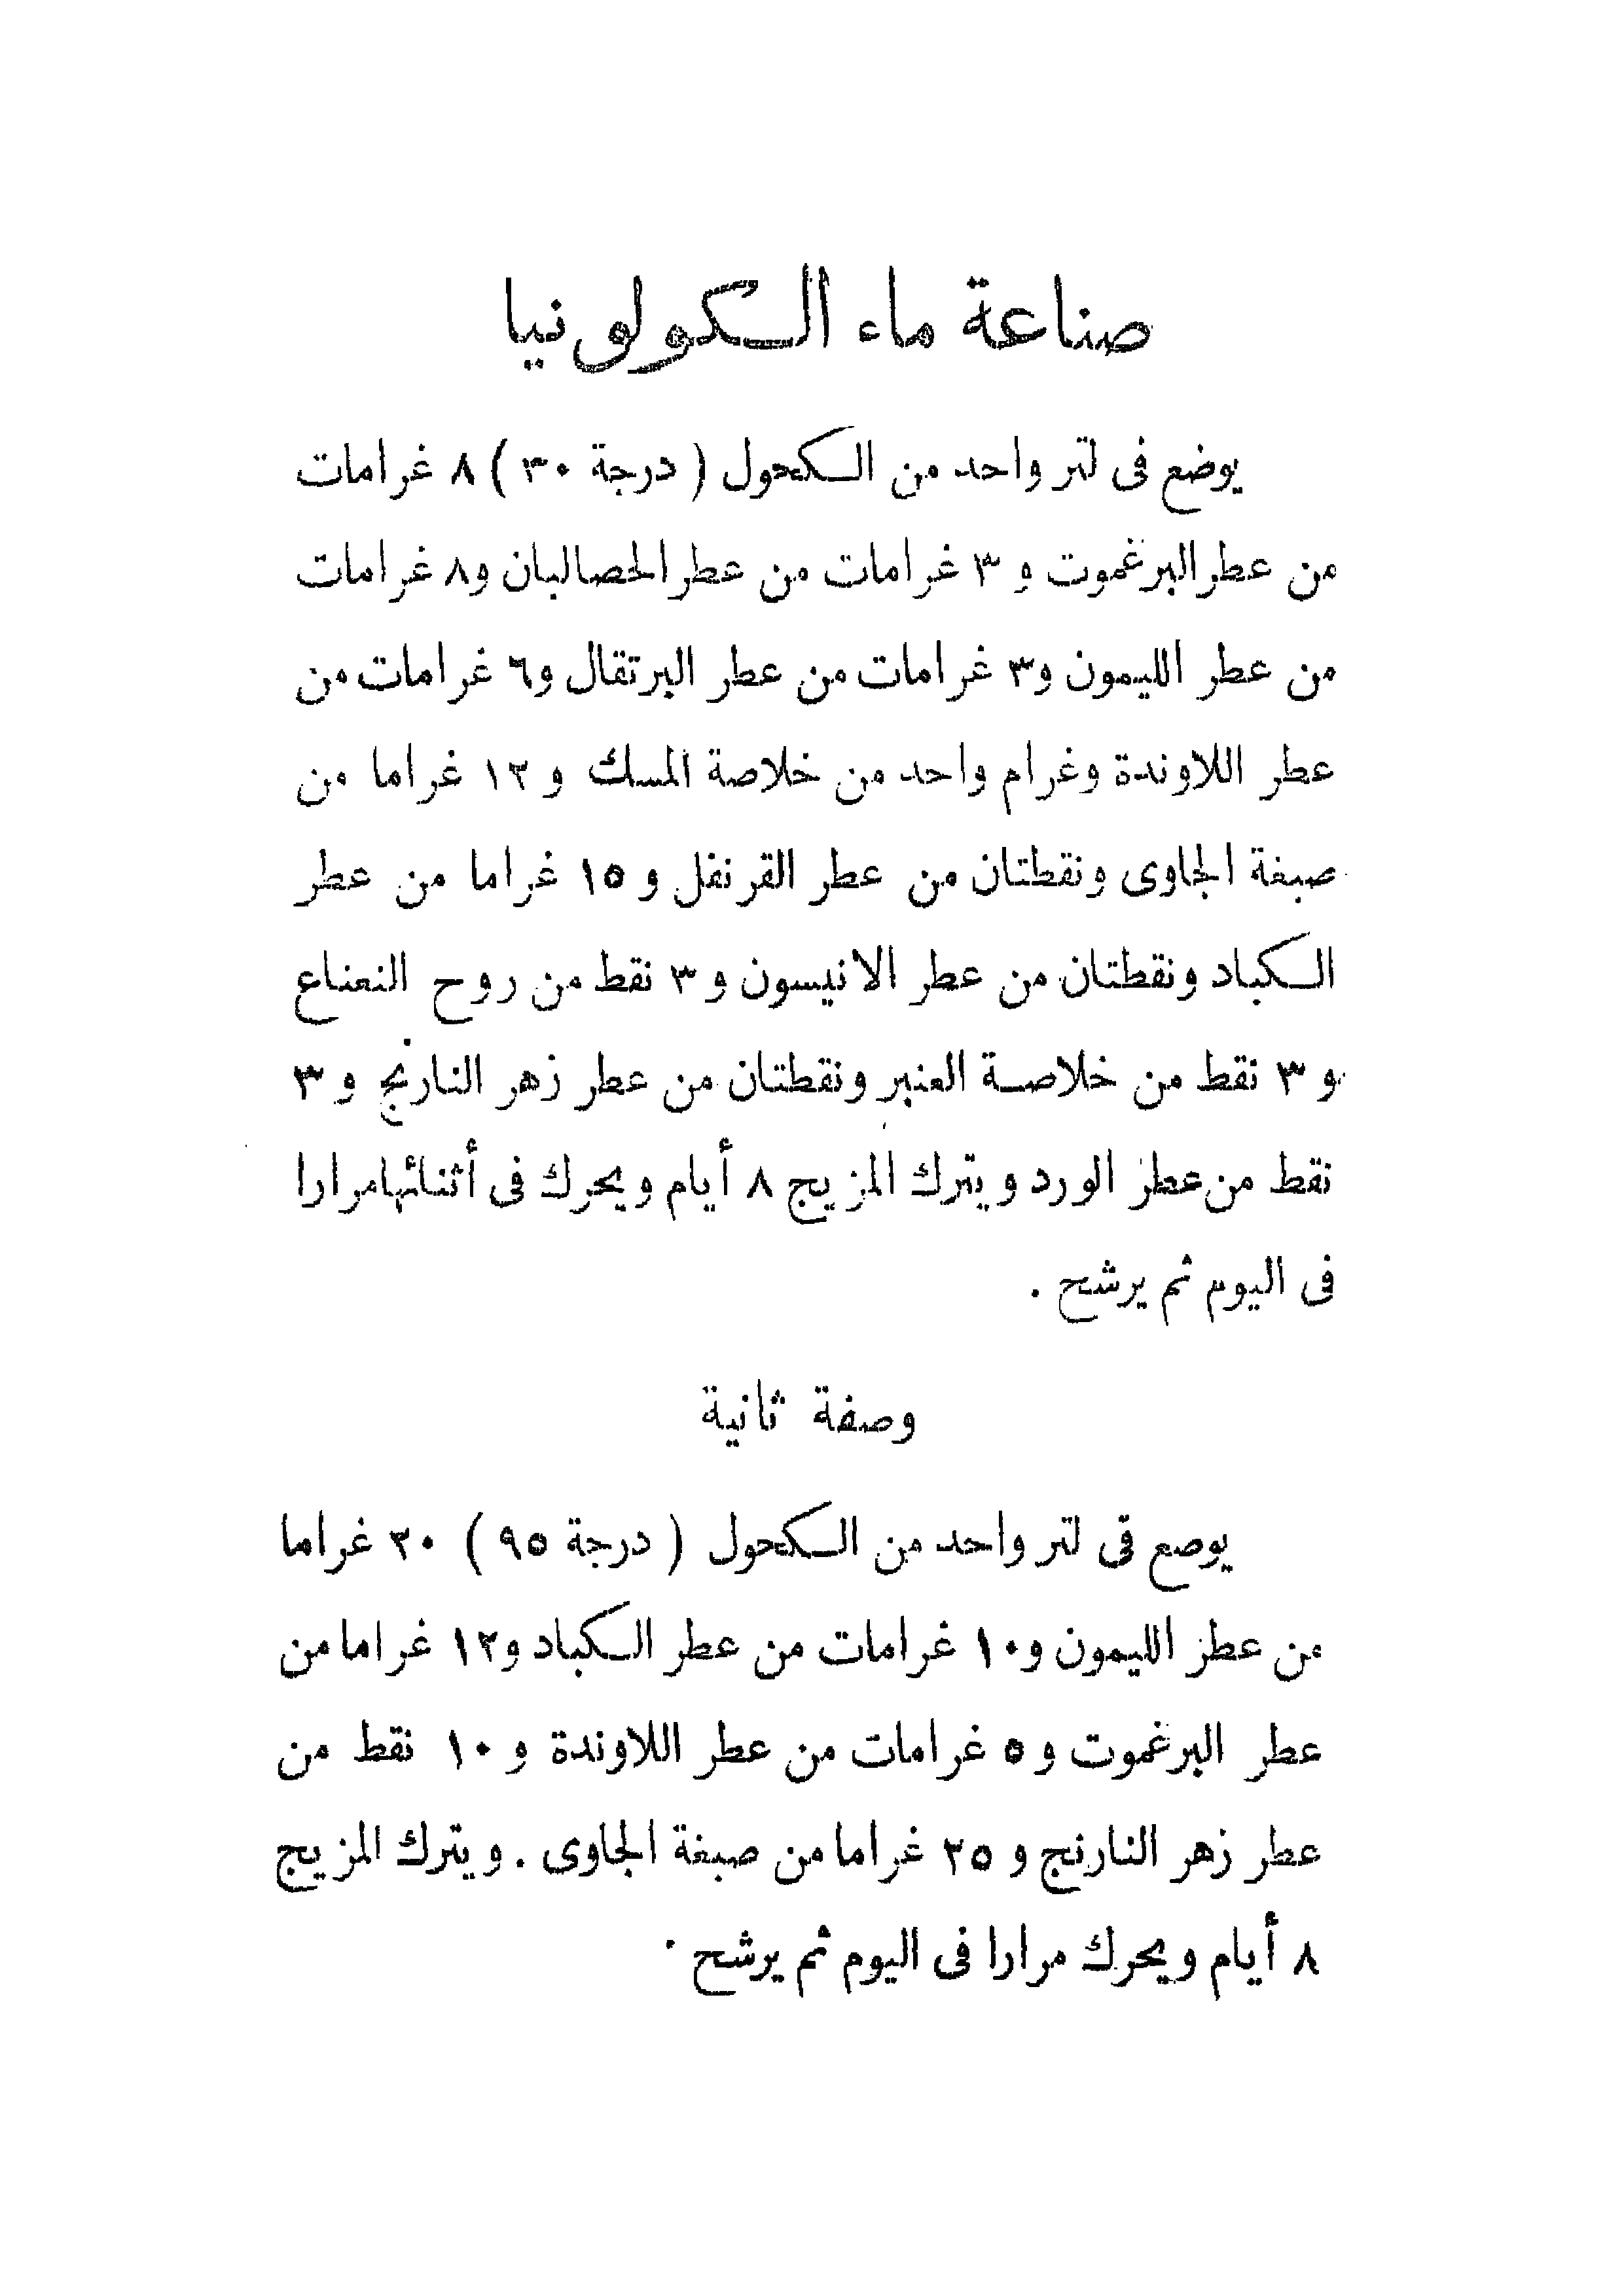 صناعة ماء الكولونيا
يوضع فى لتر واحد من الكحول ( درجة ٣٠ ) ٨ غرامات
من عطر البرغموت و ٣ غرامات من عطر الحصالبان و٨ غرامات
من عطر الليمون و٣ غرامات من عطر البرتقال و٦ غرامات من
عطر اللاوندة وغرام واحد من خلاصة المسك و ١٢ غراما من
صبغة الجاوى ونقطتان من عطر القرنفل و ١٥ غراما من عطر
الكباد ونقطتان من عطر الانيسون و ٣ نقط من روح النعناع
و ٣ نقط من خلاصة العنبر ونقطتان من عطر زهر النارنج و ٣
نقط من عطر الورد ويترك المزيج ٨ أيام ويحرك فى أثنائها مرارا
فى اليوم ثم يرشح .
وصفة ثانية
يوصع فى لتر واحد من الكحول ( درجة ٩٥ ) ٢٠ غراما
من عطر الليمون و١٠ غرامات من عطر الكباد و١٢ غراما من
عطر البرغموت و ٥ غرامات من عطر اللاوندة و ١٠ نقط من
عطر زهر النارنج و ٢٥ غراما من صبغة الجاوى . ويترك المزيج
٨ أيام ويحرك مرارا فى اليوم ثم يرشح .